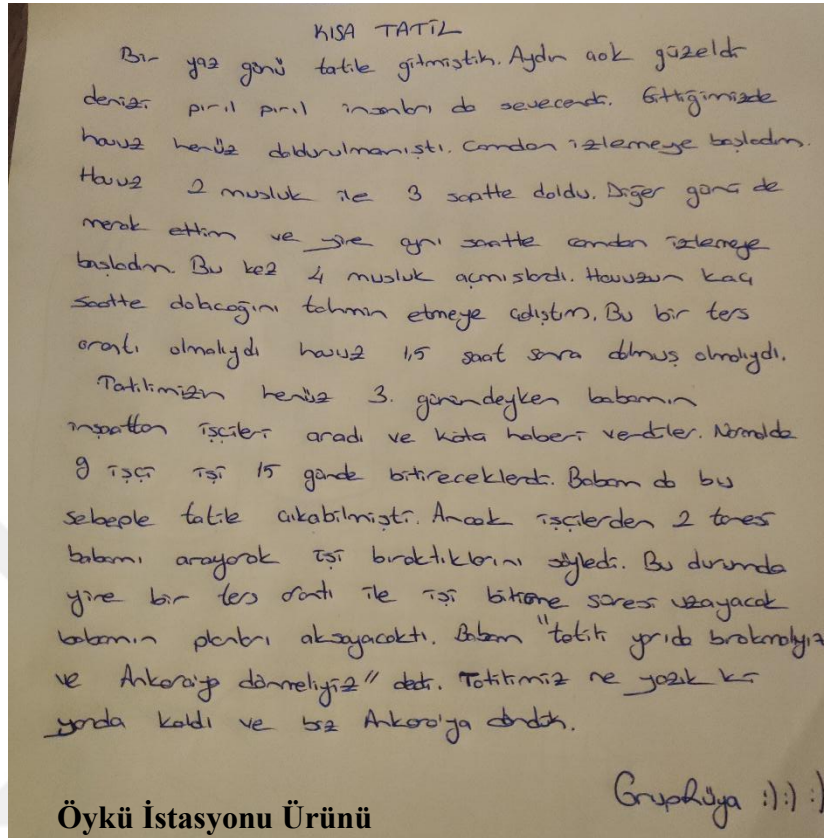 KISA TATİL
Bir yaz günü tatile gitmiştik. Aydın çok güzeldi
denizi pırıl pırıl insanları da sevecendi. Gittiğimizde
havuz henüz doldurulmamıştı. Camdan izlemeye başladım.
Havuz 2 musluk ile 3 saatte doldu. Diğer günü de
merak ettim ve yine aynı saatte camdan izlemeye
başladım. Bu kez 4 musluk açmışlardı. Havuzun kaç
saatte dolacağını tahmin etmeye çalıştım. Bu bir ters
orantı olmalıydı havuz 1,5 saat sonra dolmuş olmalıydı.
Tatilimizin henüz 3. günündeyken babamın
inşaattan işçileri aradı ve kötü haberi verdiler. Normalde
9 işçi işi 15 günde bitireceklerdi. Babam da bu
sebeple tatile çıkabilmişti. Ancak işçilerden 2 tanesi
babamı arayarak işi bıraktıklarını söyledi. Bu durumda
yine bir ters orantı ile işi bitirme süresi uzayacak
babamın planları aksayacaktı. Babam "tatili yarıda bırakmalıyız
ve Ankara'ya dönmeliyiz" dedi. Tatilimiz ne yazık ki
yarıda kaldı ve biz Ankara'ya döndük.
GrupRüya :) :) :)
Öykü İstasyonu Ürünü